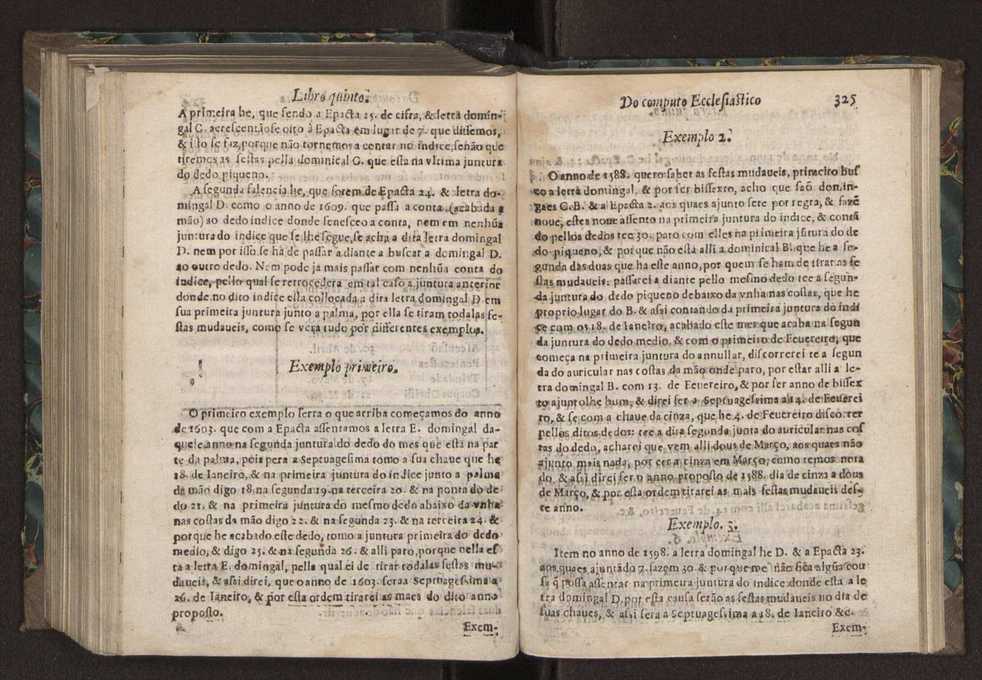 Libro quinto.
A primeira he, que sendo a Epacta 25. de cifra, & letra domin-
gal C. acrescentãose oito à Epacta em lugar de 7. que dissemos,
& isso se faz, porque não tornemos a contar no indice, senão que
tiremos as festas pella dominical C. que esta na vltima juntura
do dedo piqueno.
A segunda falencia he, que forem de Epacta 24. & letra do-
mingal D. como o anno de 1609. que passa a conta (acabada a
mão) ao dedo indice donde fenesceo a conta, nem em nenhũa
juntura do indice que se lhe segue, se acha a dita letra domingal
D. nem por isso se há de passar a diante a buscar a domingal D.
ao outro dedo. Nem pode ja mais passar com nenhũa conta do
indice, pello qual se retrocedera em tal caso a juntura anterior
donde no dito indice esta collocada a dita letra domingal D em
sua primeira juntura junto a palma, por ella se tiram todalas fe-
stas mudaueis, como se vera tudo por differentes exemplos.
Exemplo primeiro.
O primeiro exemplo serra o que arriba começamos do anno
de 1603. que com a Epacta assentamos a letra E. domingal da-
quele anno na segunda juntura do dedo do mes que está na par
te da palma, pois pera a Septuagesima tomo a sua chaue que he
18. de Ianeiro, & na primeira juntura do indice junto a palma
da mão digo 18. na segunda 19. na terceira 20. & na ponta do de-
do 21. & na primeira juntura do mesmo dedo abaixo da vnha
nas costas da mão digo 22. & na segunda 23. & na terceira 24. &
porque he acabado este dedo, tomo a juntura primeira do dedo
medio, & digo 25. & na segunda 26. & alli paro, porque nella es
ta a letra E. domingal, pella qual ei de tirar todalas festas mu-
daueis, & assi direi, que o anno de 1603. seraa Septuagesima a
26. de Ianeiro, & por esta ordem tirarei as maes do dito anno
proposto.
Exem-
Do computo Ecclesiastico 325
Exemplo 2.
O anno de 1588. quero saber as festas mudaueis, primeiro bus
co a letra domingal, & por ser bissexto, acho que saõ domin-
gaes C.B. & a Epacta 2. aos quaes ajunto sete por regra, & fazẽ
noue, estes noue assento na primeira juntura do indice, & contã
do pellos dedos tee 30. paro com elles na primeira jũtura do de
do piqueno, & porque não esta alli a dominical B. que he a se-
gunda das duas que ha este anno, por quem se ham de tirar as fe
stas mudaueis passarei a diante pello mesmo dedo tee a segun-
da juntura do dedo piqueno debaixo da vnha nas costas, que he
proprio lugar do B. & assi contando da primeira juntura do indi
ce com os 18. de Ianeiro, acabado este mes que acaba na segun
da juntura do dedo medio. & com o primeiro de Feuereiro, que
começa na primeira juntura do annullar, discorrerei te a segun
da do auricular nas costas da mão onde paro, por estar alli a le-
tra domingal B. com 13. de Feuereiro, & por ser anno de bissex
to ajuntolhe hum, & direi ser a Septuagesima aa 14. de Feuerei
ro, & se com a chaue da cinza, que he 4. de Feuereiro discorrer
pellos ditos dedos tee a dita segonda junta do auricular nas cos
tas do dedo, acharei que vem alli dous de Março, aos quaes não
ajunto mais nada, por ser a cinza em Março, como temos nota
do, & assi direi ser o anno proposto de 1588. dia de cinza a dous
de Março, & por esta ordem titarei as mais festas mudaueis des-
te anno.
Exemplo. 3.
Item no anno de 1598. a letra domingal he D. & a Epacta 23.
aos quaes ajuntado 7. fazem 30 & porque me não
assentar na primeira juntura do indice donde esta a le
tra domingal D. por esta causa serão as festas mudaueis no dia de
suas chaues, & assi sera a Septuagesima a 18. de Ianeiro &c.
Exem-